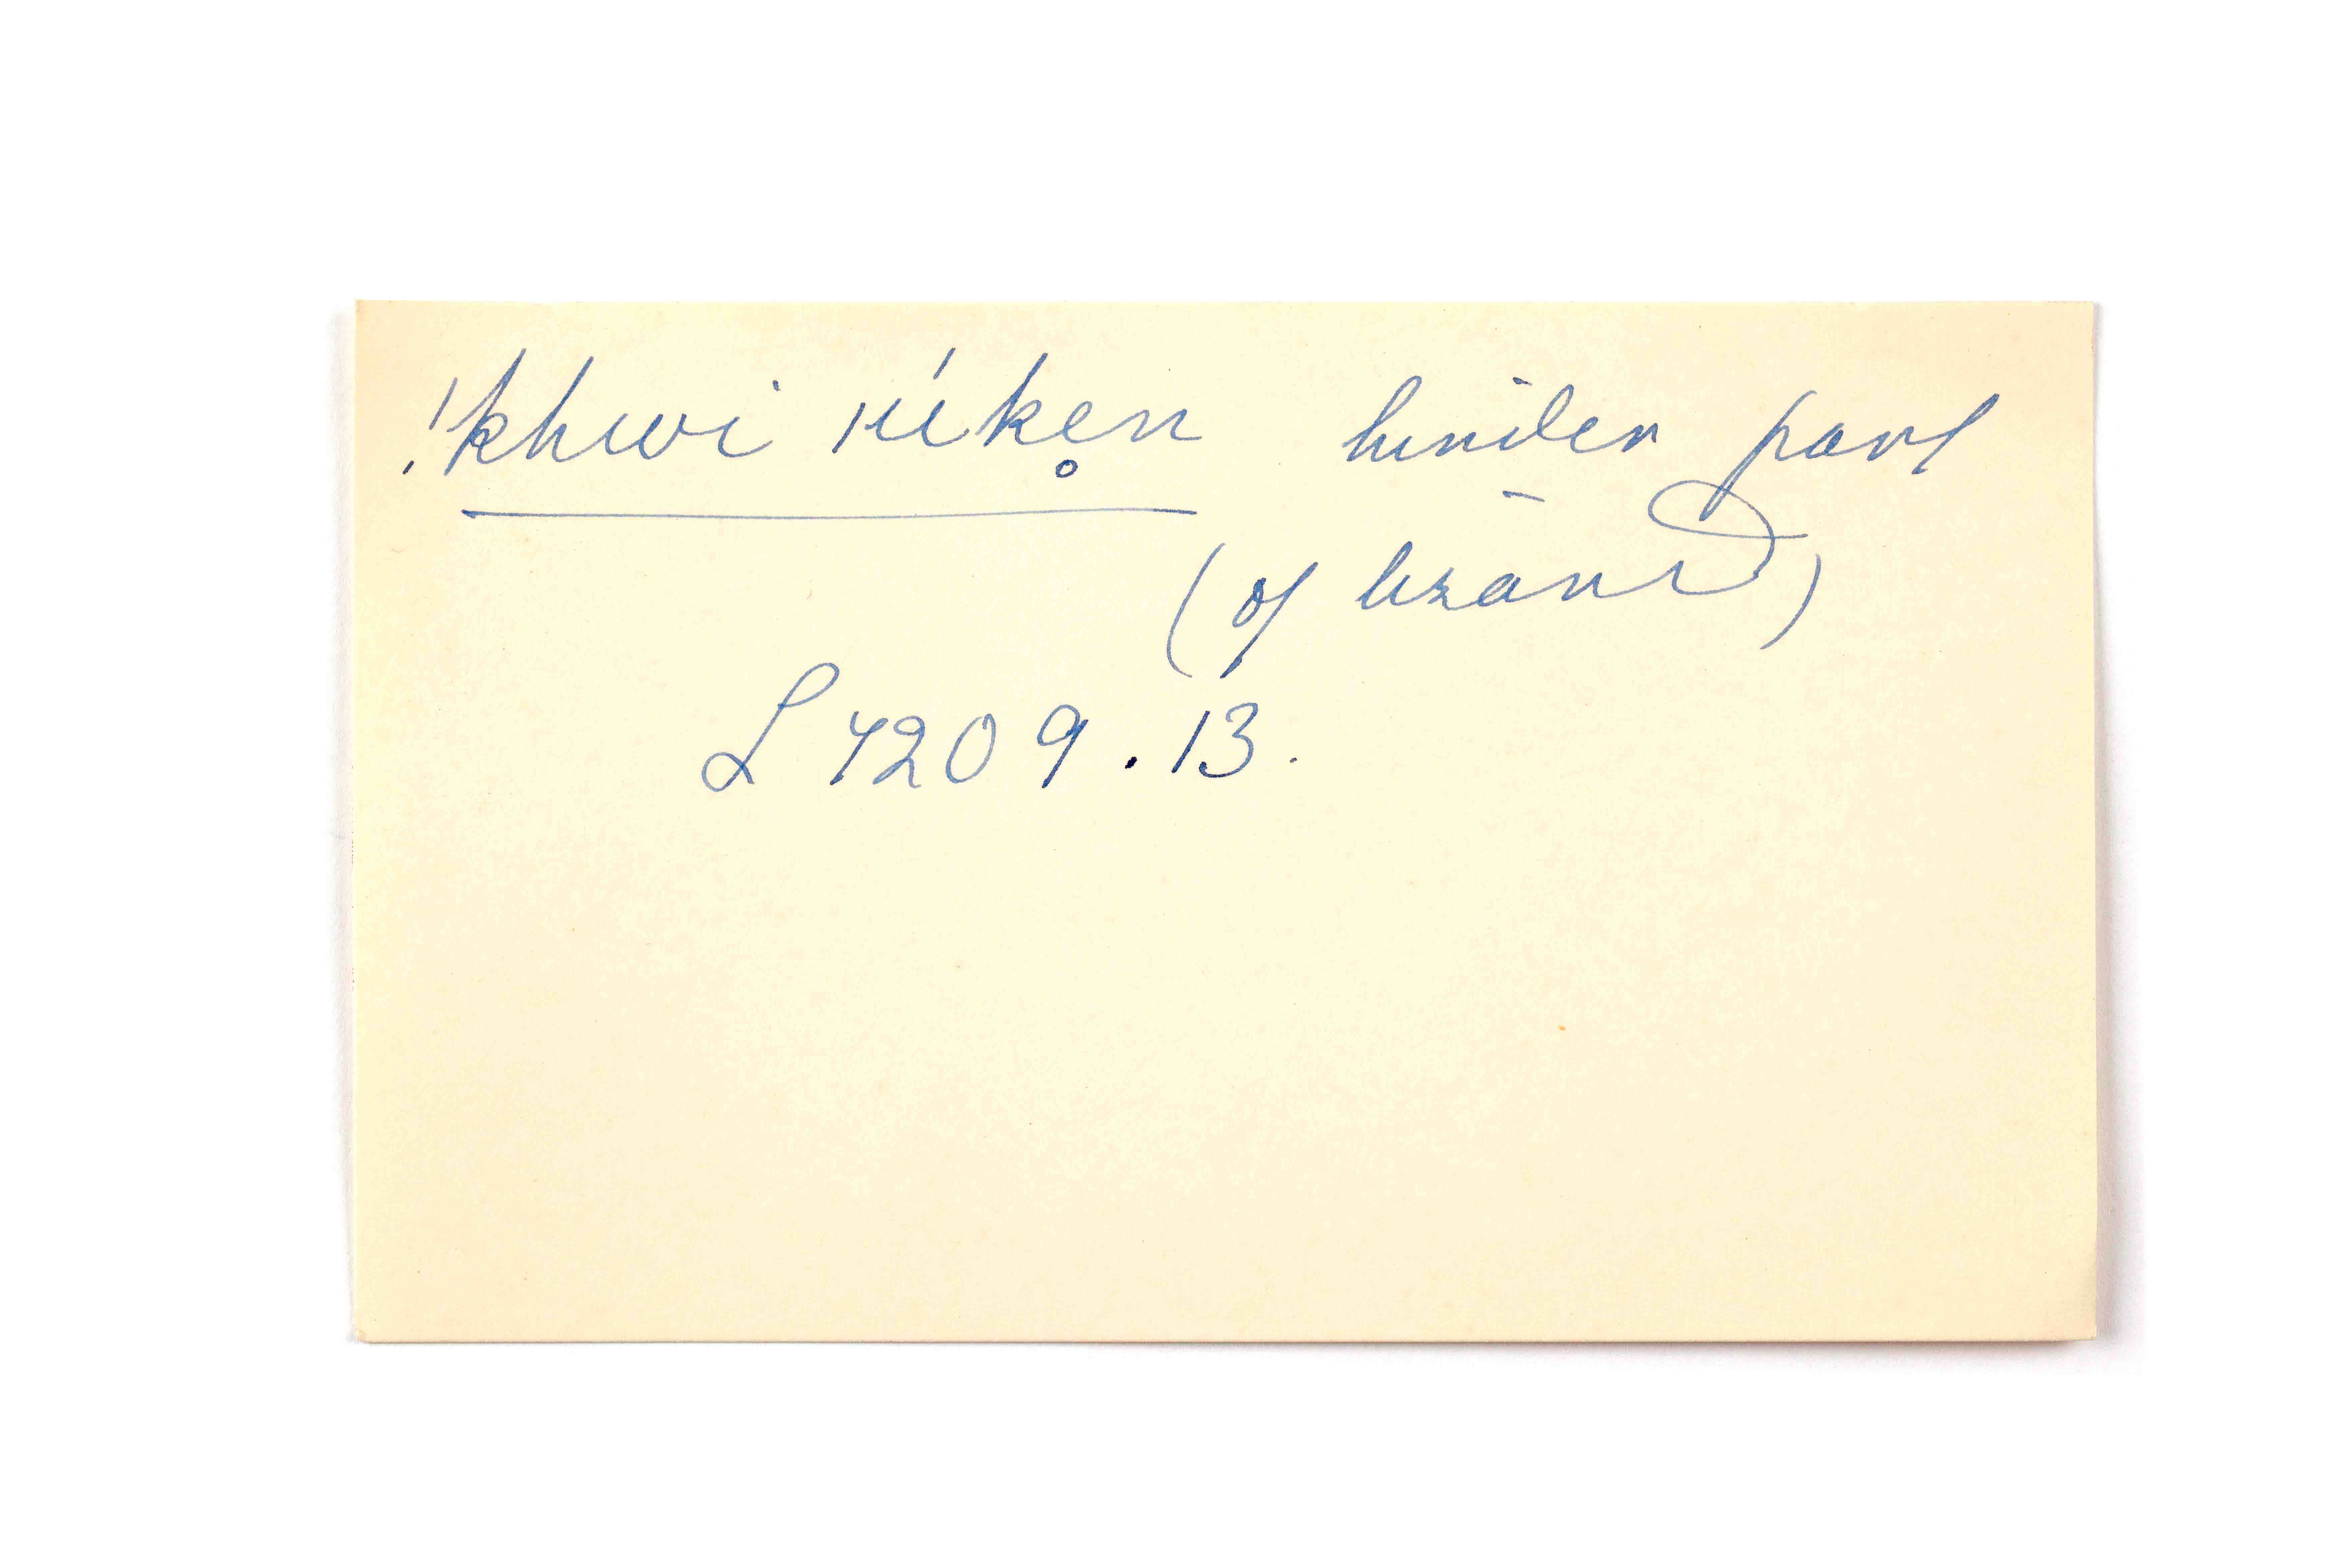 !khwi ıúken̥ hinder part
(of lizard)
L 4209.13.